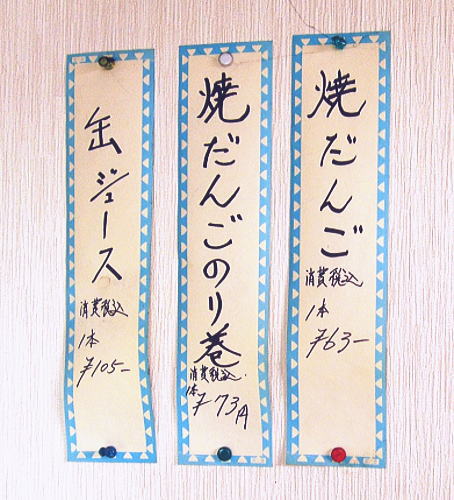 焼だんご
消費税込
1本
¥63-
焼だんごのり巻
消費税込
1本
¥73円
缶ジュース
消費税込
1本
¥105-